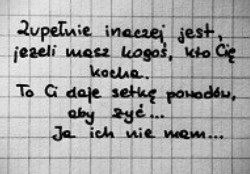 Zupełnie inaczej jest,
jeżeli masz kogoś, kto Cię
kocha.
To Ci daje setkę powodów,
aby żyć...
Ja ich nie mam...